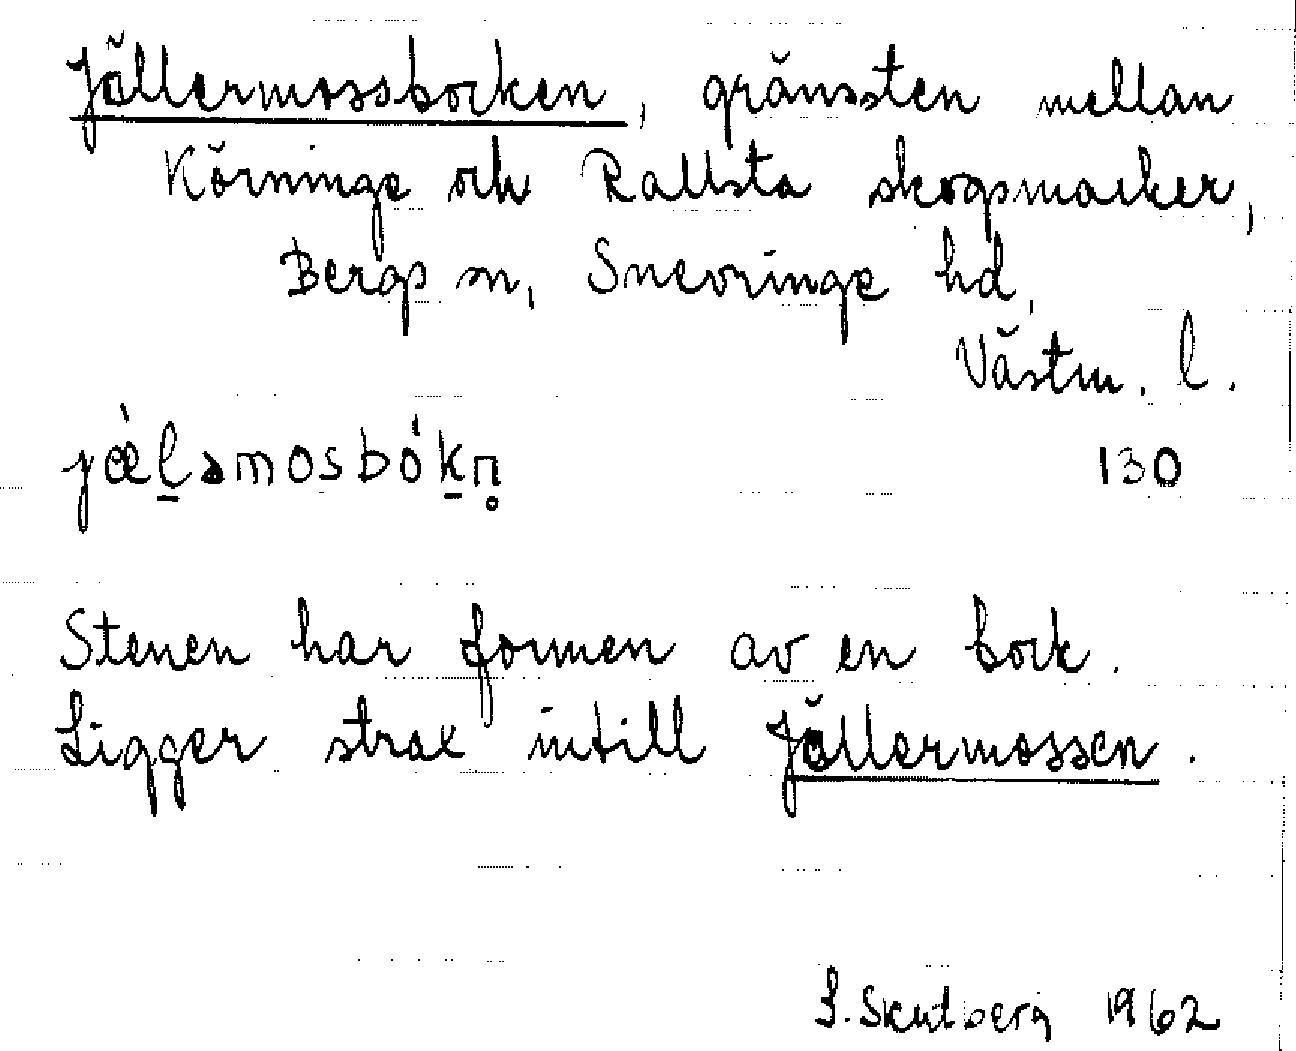 Jällermossbocken, gränssten mellan
Körninge och Rallsta skogsmarker,
Bergs sn, Snevringe hd,
Västm. l.
jæ̀l̲əmosbók̲n̥ 130
Stenen har formen av en bock.
Ligger strax intill Jällermossen.
S. Skutberg 1962